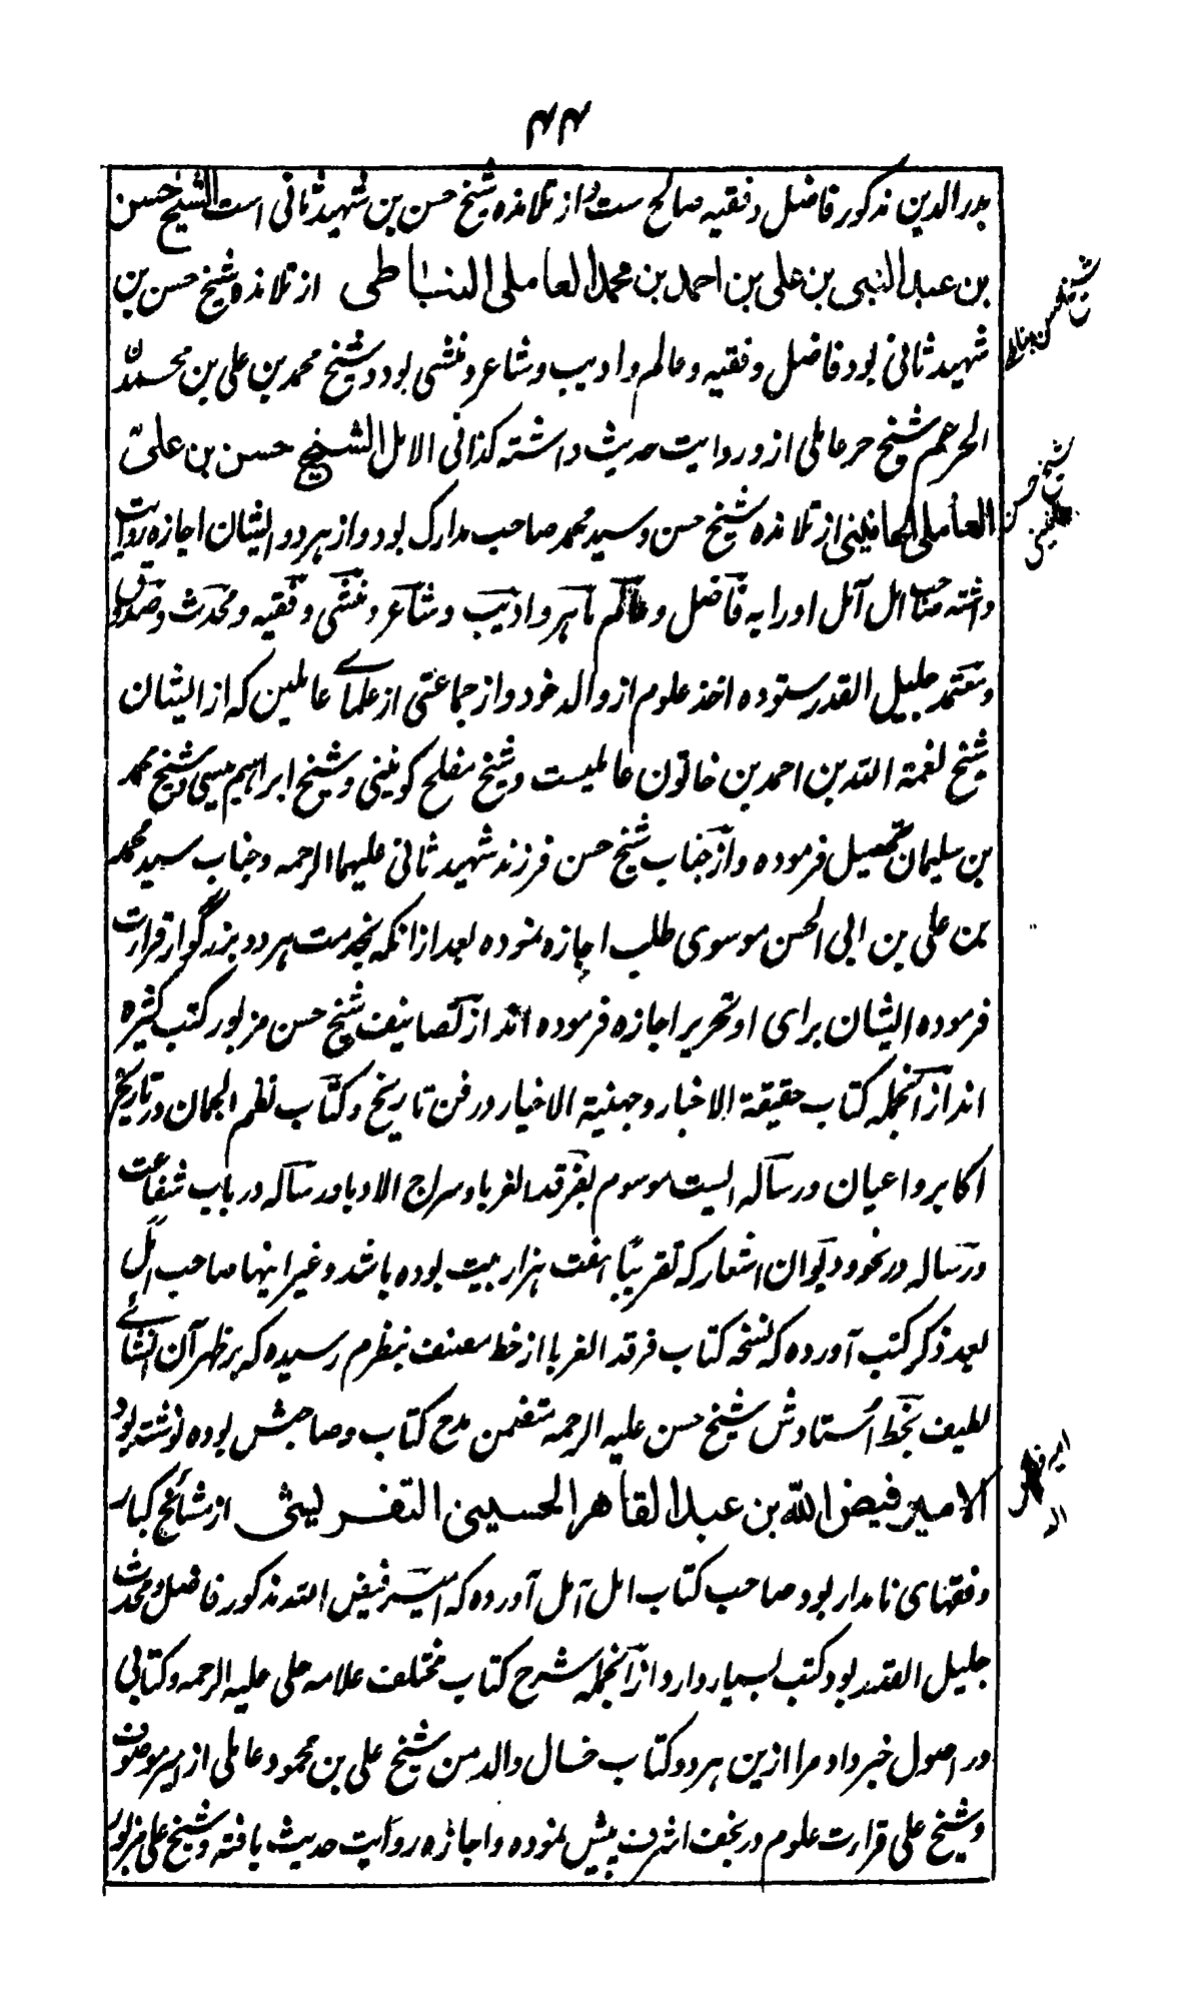 ۴۴
بدر الدین مذکور فاضل و فقیه صالح ست و از تلامذه شیخ حسن بن شهید ثانی است الشیخ حسن
بن عبد النبی بن علی بن احمد بن محمد العاملی النباطی از تلامذه شیخ حسن بن
شیخ حسن نباطی
شهید ثانی بود فاضل و فقیه و عالم و ادیب و شاعر و منشی بود و شیخ محمد بن علی بن محمد
الحر عم شیخ حر عاملی از و روایت حدیث داشته کذا فی الامل الشیخ حسن بن علی
شیخ حسن
العاملی الحانینی از تلامذه شیخ حسن و سید محمد صاحب مدارک بود و از هر دو ایشان اجازه روایت
داشته صاحب امل آمل او را به فاضل و عالم ماهر و ادیب و شاعر و منشی و فقیه و محدث و صدوق
و معتمد جلیل القدر ستوده اخذ علوم از والد خود و از جماعتی از علمای عاملین که از ایشان
شیخ نعمة الله بن احمد بن خاتون عاملیست و شیخ مفلح کونینی و شیخ ابراهیم میسی و شیخ محمد
بن سلیمان تحصیل فرموده و از جناب شیخ حسن فرزند شهید ثانی علیهما الرحمه و جناب سید محمد
بن علی بن ابی الحسن موسوی طلب اجازه نموده بعد از انکه بخدمت هر دو بزرگوار قرارت
فرموده ایشان برای او تحریر اجازه فرموده اند از تصانیف شیخ حسن مزبور کتب کثیره
اند از آنجمله کتاب حقیقة الاخبار و جهینة الاخبار در فن تاریخ و کتاب نظم الجمان در تاریخ
اکابر و اعیان و رساله ایست موسوم بفرقد الغربا و سراج الادبا و رساله در باب شفاعت
و رساله در نحو و دیوان اشعار که تقریبا هفت هزار بیت بوده باشد و غیر اینها صاحب امل
بعد ذکر کتب آورده که نسخه کتاب فرقد الغربا از خط مصنف بنظرم رسیده که بر ظهر آن انشائے
لطیف بخط استادش شیخ حسن علیه الرحمه متضمن مدح کتاب و صاحبش بوده نوشته بود
الامیر فیض الله بن عبد القاهر الحسینی التفریشی از مشائخ کبار
و فقهای نامدار بود صاحب کتاب امل آمل آورده که امیر فیض الله مذکور فاضل و محدث
جلیل القدر بود کتب بسیار دارد از آنجمله شرح کتاب مختلف علامه حلی علیه الرحمه و کتابی
در اصول خبر داد مرا ازین هر دو کتاب خال والد من شیخ علی بن محمود عاملی از میر موصوف
و شیخ علی قرارت علوم در نجف اشرف پیش نموده و اجازه روایت حدیث یافته و شیخ علی مزبور